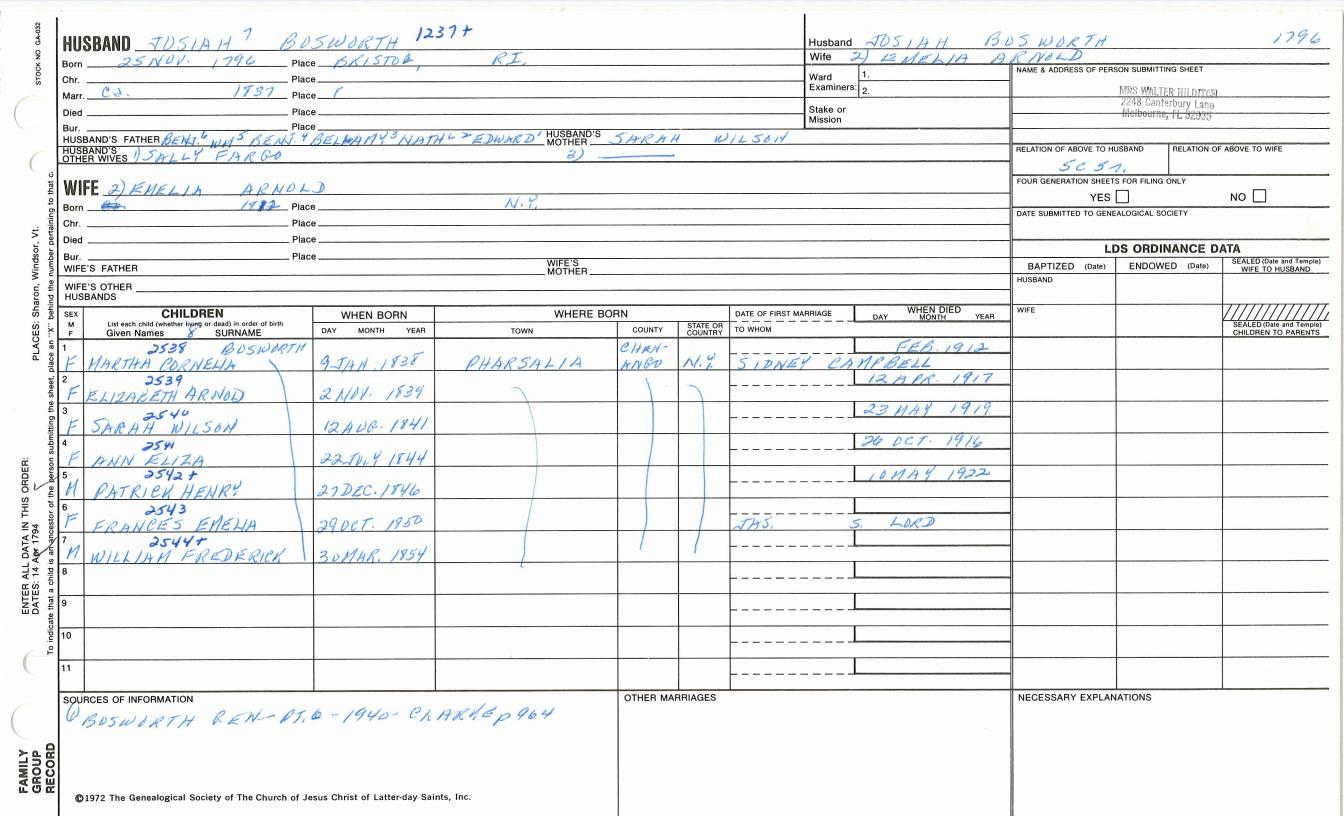 STOCK NO. GA-032
HUSBAND JOSIAH 7 BOSWORTH 1237+
Born 25 NOV. 1796 Place BRISTOL, RI.
Chr. Place
Marr. Ca. 1837 Place
Died Place
Bur. Place
HUSBAND'S FATHER BENJ.6 WM5 BENJ.4 BELLAMY3 NATHL2 EDWARD1 HUSBAND'S MOTHER SARAH WILSON
HUSBAND'S OTHER WIVES 1) SALLY FARGO 3)
WIFE 2) EMELIA ARNOLD
Born Place N.Y.
Chr. Place
Died Place
Bur. Place
WIFE'S FATHER WIFE'S MOTHER
WIFE'S OTHER HUSBANDS
Husband JOSIAH BOSWORTH 1796
Wife 2) EMELIA ARNOLD
Ward Examiners: 1.
2.
Stake or Mission
NAME & ADDRESS OF PERSON SUBMITTING SHEET
MRS WALTER HILDITCH
2248 Canterbury Lane
Melbourne, FL 32935
RELATION OF ABOVE TO HUSBAND RELATION OF ABOVE TO WIFE
FOUR GENERATION SHEETS FOR FILING ONLY
YES NO
DATE SUBMITTED TO GENEALOGICAL SOCIETY
LDS ORDINANCE DATA
BAPTIZED (Date) ENDOWED (Date) SEALED (Date and Temple) WIFE TO HUSBAND
HUSBAND
WIFE
SEALED (Date and Temple) CHILDREN TO PARENTS
SEX M F
CHILDREN
List each child (whether living or dead) in order of birth
Given Names 8 SURNAME
WHEN BORN
DAY MONTH YEAR
WHERE BORN
TOWN COUNTY STATE OR COUNTRY
DATE OF FIRST MARRIAGE
TO WHOM
WHEN DIED
DAY MONTH YEAR
1 2538 BOSWORTH CHEN- FEB. 1912
F MARTHA CORNELIA 9 JAN. 1838 PHARSALIA ANGO N.Y. SIDNEY CAMPBELL
2 2539 12 APR. 1917
F ELIZABETH ARNOLD 2 NOV. 1839
3 2540 23 MAY 1919
F SARAH WILSON 12 AUG. 1841
4 2541 26 OCT. 1916
F ANN ELIZA 22 JULY 1844
5 2542+ 10 MAY 1922
M PATRICK HENRY 27 DEC. 1846
6 2543
F FRANCES EMELIA 29 OCT. 1850 JAS. S. LORD
7 2544+
M WILLIAM FREDERICK 30 MAR. 1854
8
9
10
11
SOURCES OF INFORMATION
1) BOSWORTH GEN- PT. 6 - 1940- CLARKE p 964
OTHER MARRIAGES
NECESSARY EXPLANATIONS
©1972 The Genealogical Society of The Church of Jesus Christ of Latter-day Saints, Inc.
PLACES: Sharon, Windsor, Vt.
ENTER ALL DATA IN THIS ORDER:
DATES: 14 Apr 1794
To indicate that a child is an ancestor of the person submitting the sheet, place an "X" behind the number pertaining to that c.
FAMILY GROUP RECORD